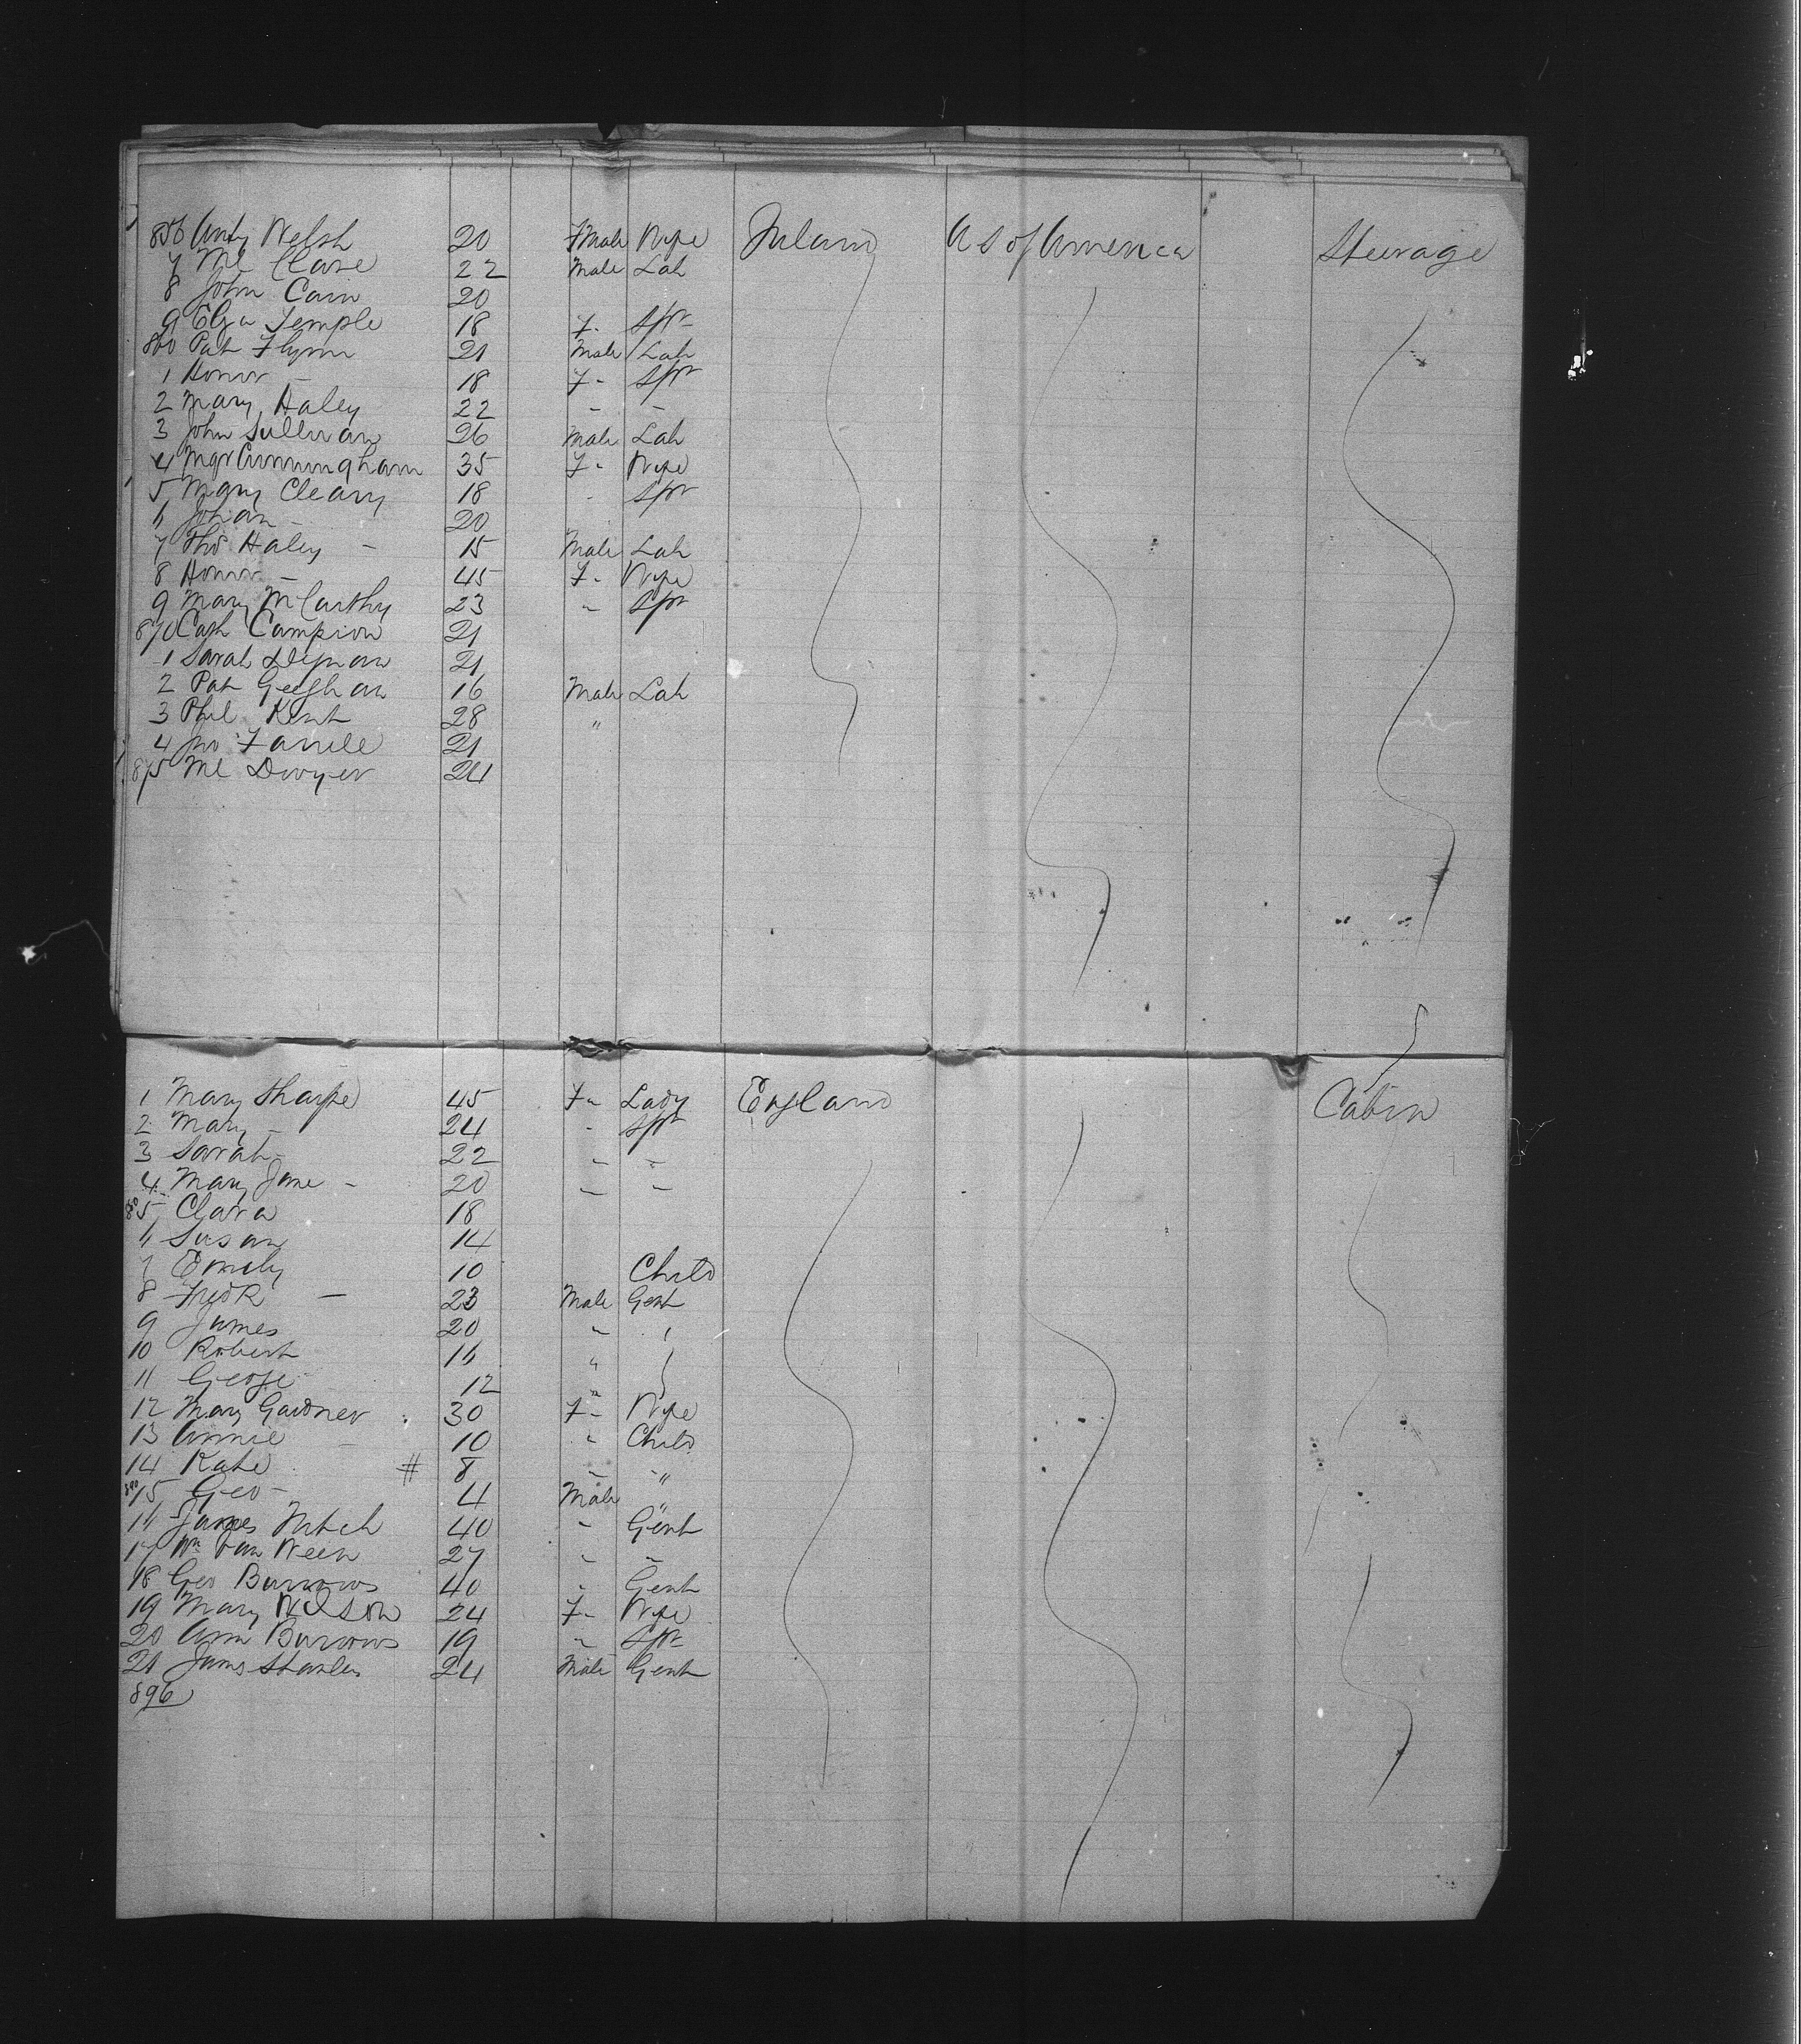 856 Welsh 20 F Male Wife Ireland U S of America Steerage
7 Ml Clare 22 Male Lab
8 John Cain 20
9 Eliza Temple 18 F - Spr
860 Pat Flynn 21 Male Lab
1 Honor - 18 F - Spr
2 Mary Haley 22 - -
3 John Sullivan 26 Male Lab
4 Mgt Cunningham 35 F - Wife
5 Mary Cleary 18 - Spr
6 Johan - 20
7 Thos Haley - 15 Male Lab
8 Honor - 45 F - Wife
9 Mary McCarthy 23 " Spr
870 Cath Campion 21
1 Sarah 21
2 Pat Geeghan 16 Male Lab
3 Phil Kent 28 "
4 Jno Farrell 21
875 Ml Dwyer 24
1 Mary Sharpe 45 F - Lady England Cabin
2 Mary - 24 - Spr
3 Sarah - 22 - -
4 Mary Jane - 20 - -
880 5 Clara 18
6 Susan 14
7 Emily 10 Child
8 Fredk - 23 Male Gent
9 James 20 " "
10 Robert 16 "
11 George 12 "
12 Mary Gardner 30 F - Wife
13 Annie - 10 " Child
14 Kate # 8 - "
890 15 Geo - 4 Male "
16 James 40 - Gent
17 Wm Van 27 - -
18 Geo Burrows 40 - Gent
19 Mary Wilson 24 F - Wife
20 Ann Burrows 19 " Spr
21 James Stanley 24 Male Gent
896